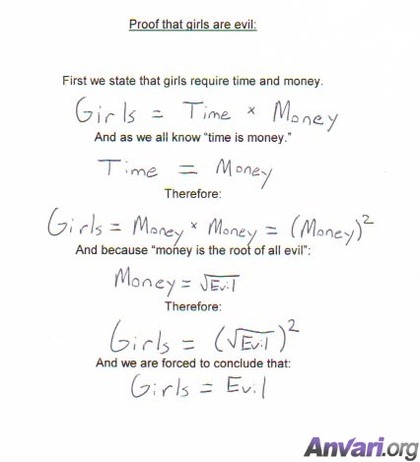 Proof that girls are evil:
First we state that girls require time and money.
Girls = Time × Money
And as we all know "time is money."
Time = Money
Therefore:
Girls = Money × Money = (Money)²
And because "money is the root of all evil":
Money = √Evil
Therefore:
Girls = (√Evil)²
And we are forced to conclude that:
Girls = Evil
Anvari.org